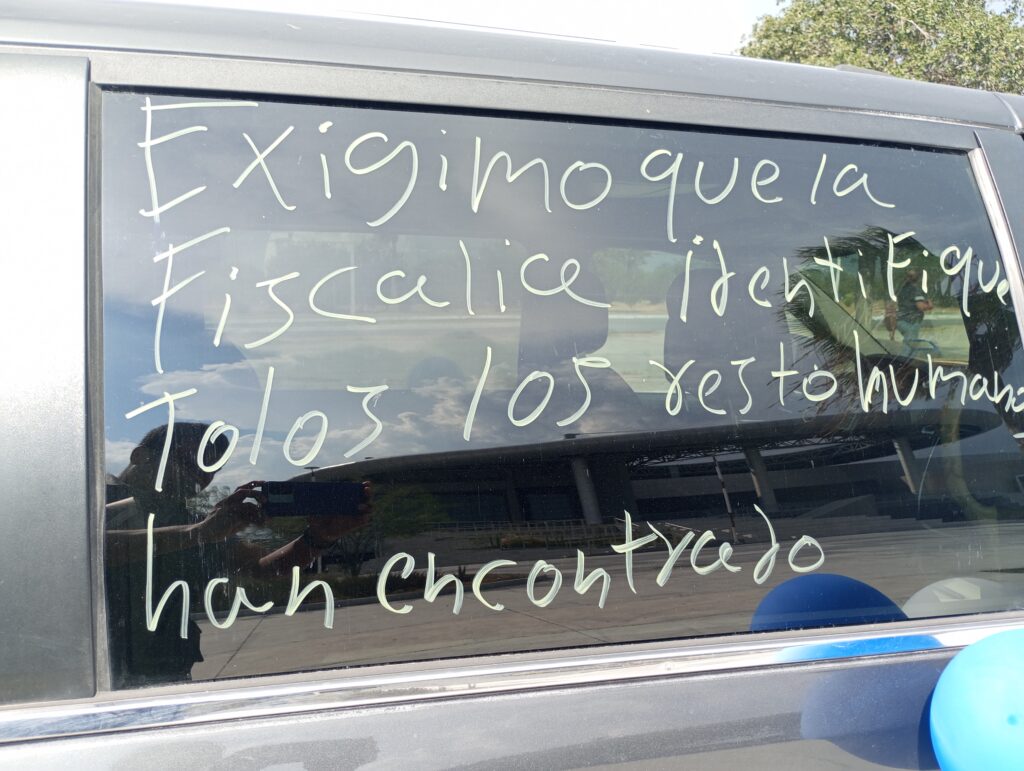 Exigimo que la
Fiscalice identifique
Tolos los resto humano
han encontrado